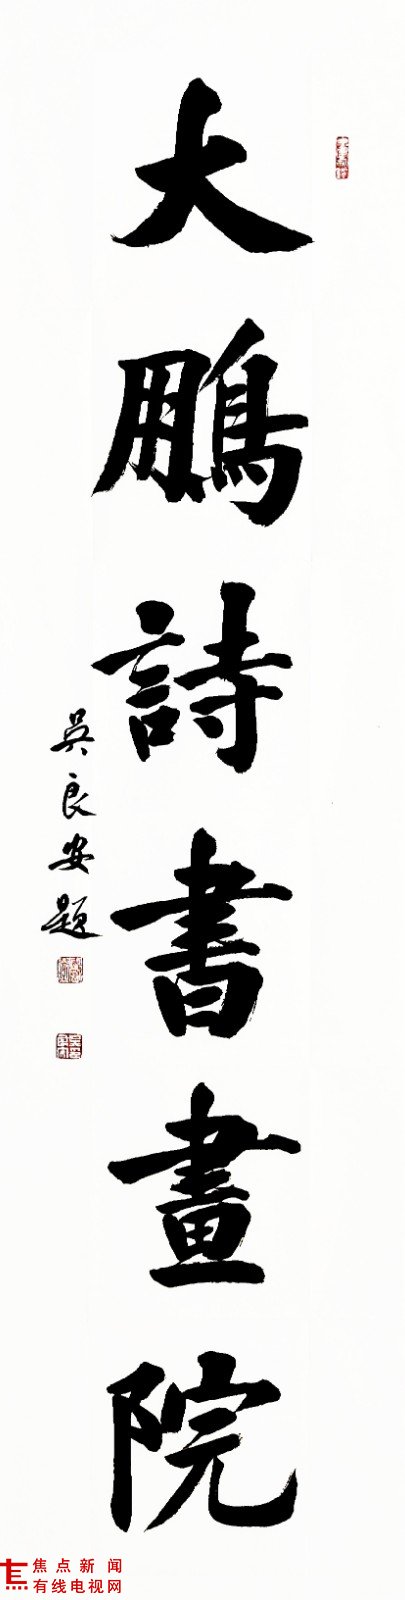 大鵬詩書畫院
吳良安題
焦点新闻
有线电视网